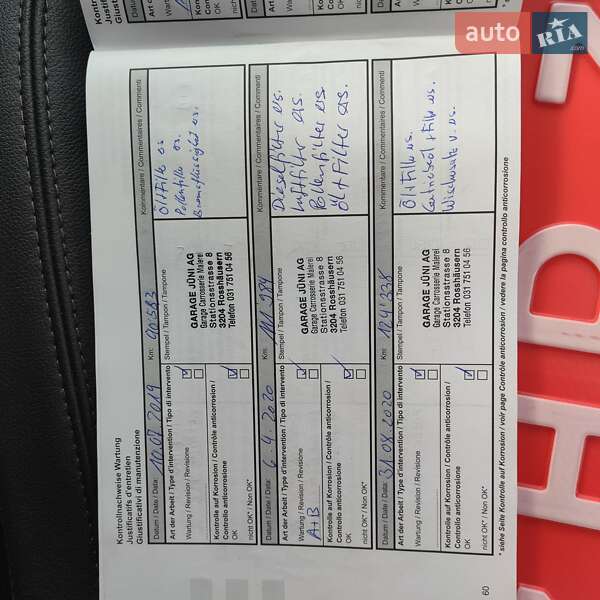 auto RIA.com
Kontrollnachweise Wartung
Justificatifs d'entretien
Giustificativi di manutenzione
Datum / Date / Data: 10.07.2019 Km: 90'583
Art der Arbeit / Type d'intervention / Tipo di intervento
Wartung / Revision / Revisione
Kontrolle auf Korrosion / Contrôle anticorrosion /
Controllo anticorrosione
OK
nicht OK* / Non OK*
Stempel / Tampon / Tampone
GARAGE JÜNI AG
Garage Carrosserie Malerei
Stationsstrasse 8
3204 Rosshäusern
Telefon 031 751 04 56
Kommentare / Commentaires / Commenti
Öl + Filter es.
Pollenfilter es.
Bremsflüssigkeit es.
Datum / Date / Data: 6.4.2020 Km:
Art der Arbeit / Type d'intervention / Tipo di intervento
Wartung / Revision / Revisione
A+B
Kontrolle auf Korrosion / Contrôle anticorrosion /
Controllo anticorrosione
OK
nicht OK* / Non OK*
Stempel / Tampon / Tampone
GARAGE JÜNI AG
Garage Carrosserie Malerei
Stationsstrasse 8
3204 Rosshäusern
Telefon 031 751 04 56
Kommentare / Commentaires / Commenti
Dieselfilter es.
Luftfilter es.
Pollenfilter es
Öl + Filter es.
Datum / Date / Data: 31.08.2020 Km: 124'338
Art der Arbeit / Type d'intervention / Tipo di intervento
Wartung / Revision / Revisione
Kontrolle auf Korrosion / Contrôle anticorrosion /
Controllo anticorrosione
OK
nicht OK* / Non OK*
Stempel / Tampon / Tampone
GARAGE JÜNI AG
Garage Carrosserie Malerei
Stationsstrasse 8
3204 Rosshäusern
Telefon 031 751 04 56
Kommentare / Commentaires / Commenti
Öl + Filter es.
+ Filter es.
* siehe Seite Kontrolle auf Korrosion / voir page Contrôle anticorrosion / vedere la pagina controllo anticorrosione
60